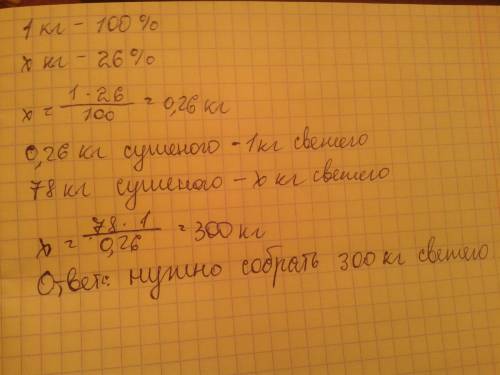 1 кг - 100 %
х кг - 26 %
х = 1 · 26 / 100 = 0,26 кг
0,26 кг сушеного - 1 кг свешего
78 кг сушеного - х кг свешего
х = 78 · 1 / 0,26 = 300 кг
Ответ: нужно собрать 300 кг свешего